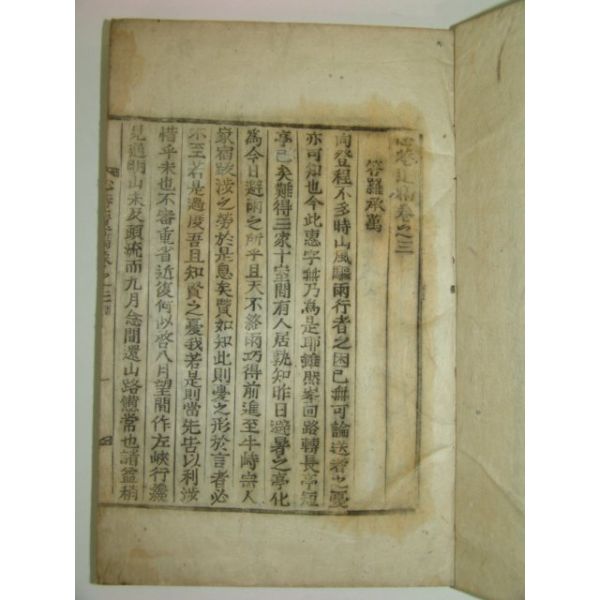 心巷遺稿卷之三
答羅承萬
向登程不多時山風驅雨行者之困已無可論送者之憂
亦可知也今此惠字無乃爲是耶雖然峯回路轉長亭短
亭已矣難得三家十室間有人居孰知昨日避暑之亭化
爲今日避雨之所乎且天不終雨巧得前進至牛峙宗人
家宿跋涉之勞於是息矣賢如知此則憂之形於言者必
不至若是過度吾且知賢之憂我若是則當先告以利涉
惜乎未也不審重省近復何似啓八月望間作左峽行幾
見過明山未及頭流而九月念間還山路憊常也諸益稍